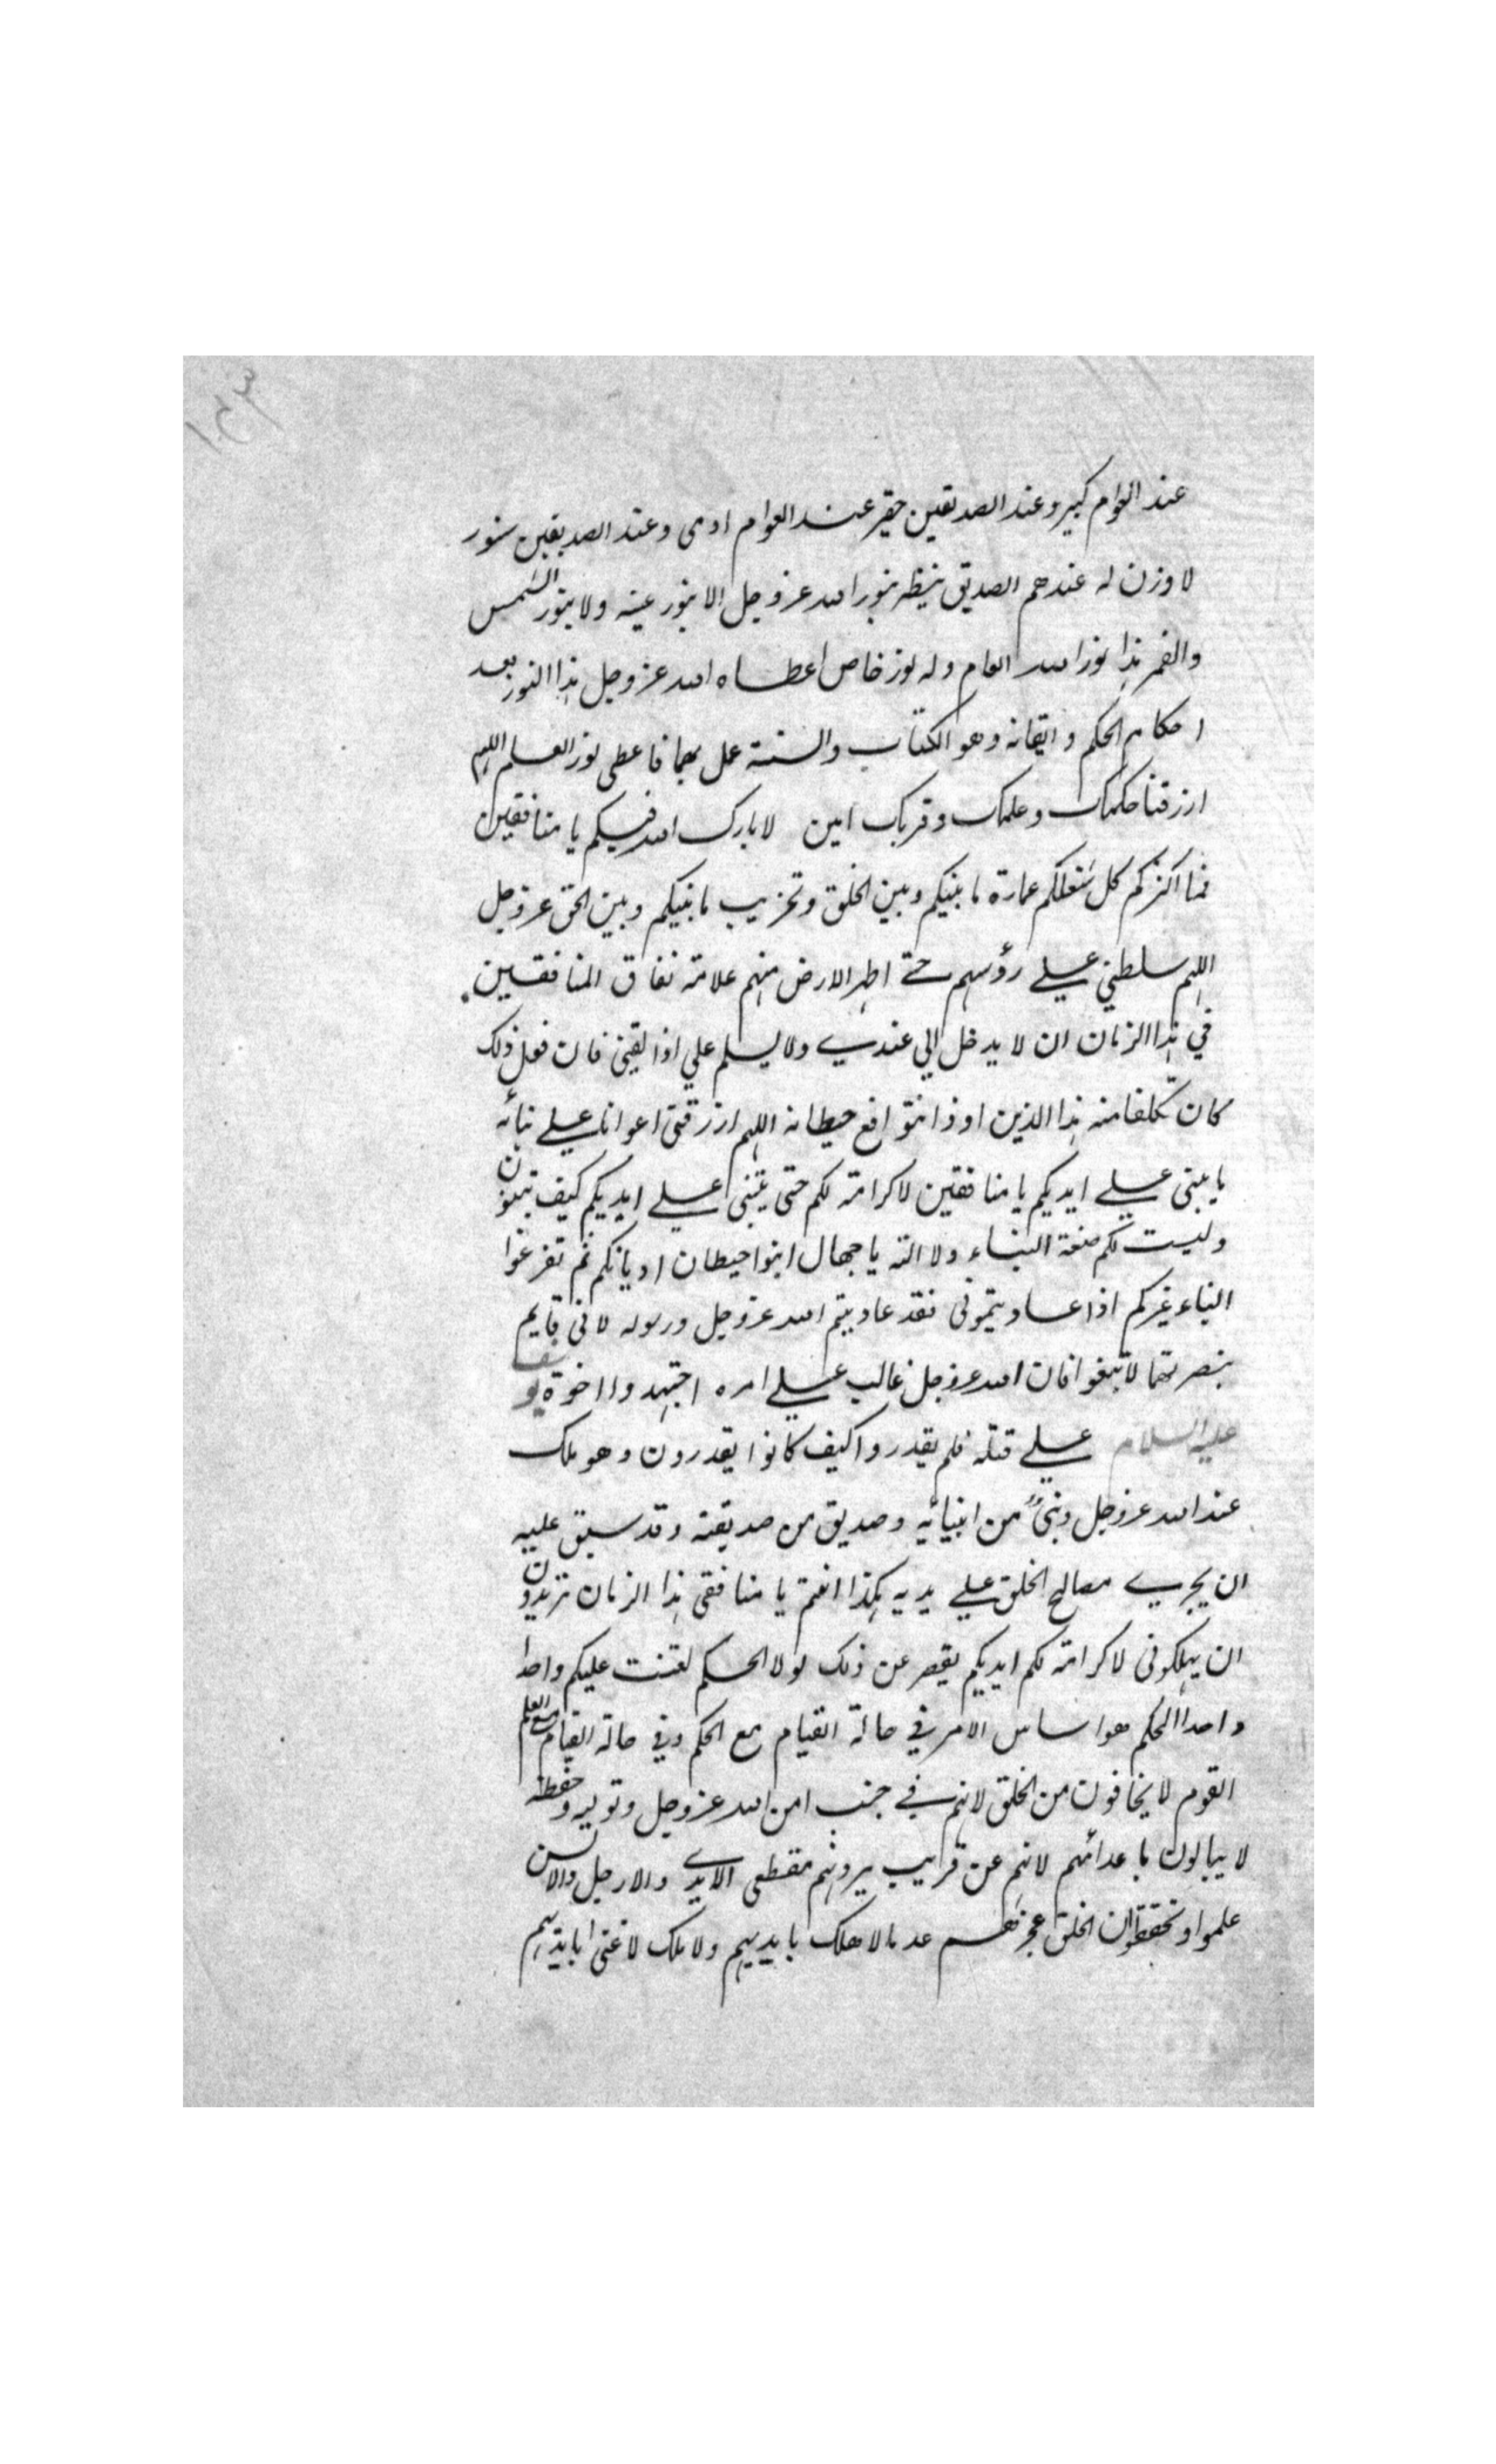 ١٤٣
عند العوام كبير وعند الصديقين حقير عند العوام ادمى وعند الصديقين سنور
لا وزن له عندهم الصديق ينظر بنور الله عز وجل لا بنور عينه ولا بنور الشمس
والقمر هذا نور الله العام وله نور خاص اعطاه الله عز وجل هذا النور بعد
احكام الحكم واتقانه وهو الكتاب والسنة عمل بهما فاعطى نور العلم اللهم
ارزقنا حكمك وعلمك وقربك امين لا بارك الله فيكم يا منافقين
فما اكثركم كل شغلكم عمارة ما بينكم وبين الخلق وتخريب ما بينكم وبين الحق عز وجل
اللهم سلطني على رؤسهم حتى اطهر الارض منهم علامة نفاق المنافقين
في هذا الزمان ان لا يدخل الي عندي ولا يسلم علي اذا لقيني فان فعل ذلك
كان تكلفا منه هذا الدين حيطانه اللهم ارزقني اعوانا على بنائه
ما يبنى على ايديكم يا منافقين لا كرامة لكم حتى يبنى على ايديكم كيف تبنون
وليست لكم صنعة البناء ولا الته يا جهال ابنوا حيطان اديانكم ثم تفرغوا
البناء غيركم اذا عاديتموني فقد عاديتم الله عز وجل ورسوله لاني قايم
بنصرتهما لا تبغوا فان الله عز وجل غالب على امره اجتهدوا اخوة يوسف
عليه السلام على قتله فلم يقدروا كيف كانوا يقدرون وهو ملك
عند الله عز وجل ونبي من انبيائه وصديق من صديقيه وقد سبق عليه
ان يجري مصالح الخلق على يديه هكذا انتم يا منافقي هذا الزمان تريدون
ان يهلكوني لا كرامة لكم ايديكم يقصر عن ذلك لولا الحكم لعينت عليكم واحدا
واحدا الحكم هو اساس الامر في حالة القيام مع الحكم وفي حالة القيام مع العلم
القوم لا يخافون من الخلق لانهم في جنب امن الله عز وجل وتوليه وحفظه
لا يبالون باعدائهم لانهم عن قريب يرونهم مقطعي الايدي والارجل والالسن
علموا وتحققوا ان الخلق عجز عدم لا هلك بايديهم ولا ملك لا غنى بايديهم